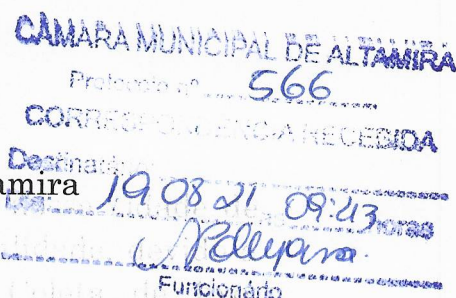 CÂMARA MUNICIPAL DE ALTAMIRA
Protocolo nº 566
CORRESPONDENCIA RECEBIDA
Destinad
amira 19 08 21 09:43 horas
Pollyana
Funcionário